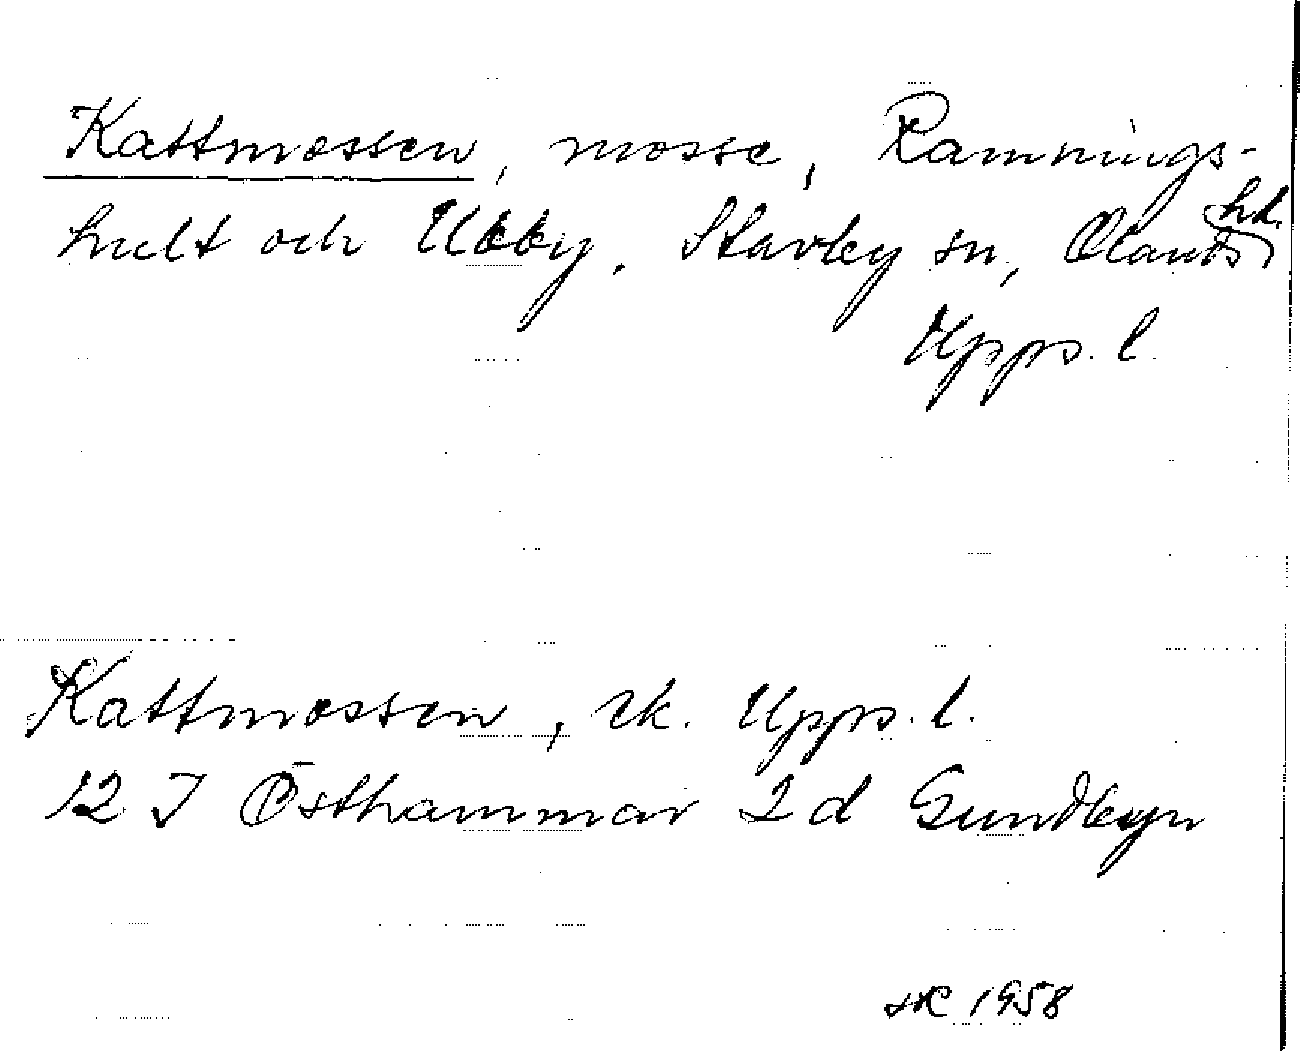 Kattmossen, mosse, Ramnings-
hult och Ubby, Stavby sn, Olands hd.
Upps. l.
Kattmossen, rk. Upps. l.
12 I Östhammar 2 d Gundbyn
1958